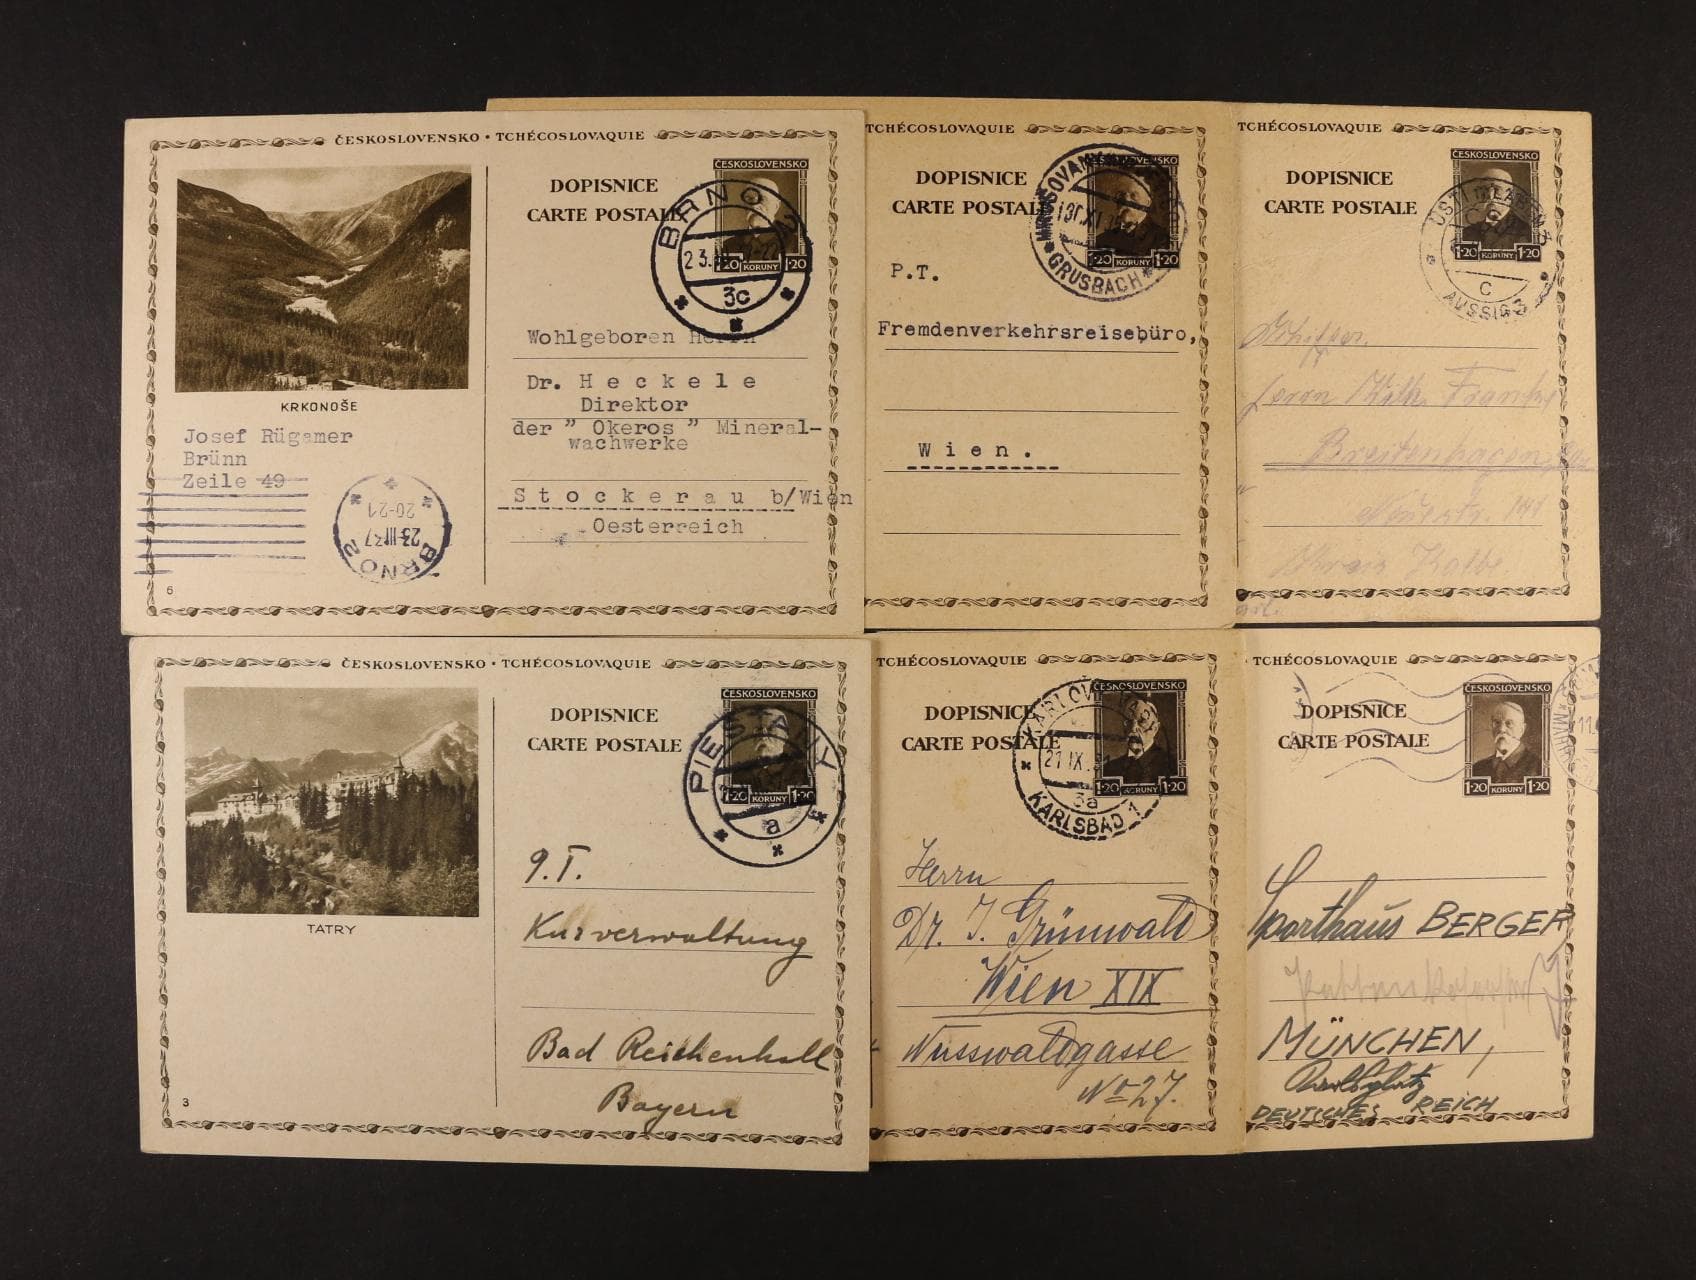 ČESKOSLOVENSKO • TCHÉCOSLOVAQUIE
DOPISNICE
CARTE POSTALE
ČESKOSLOVENSKO
1·20 KORUNY 1·20
BRNO 3
3c
KRKONOŠE
Josef Rügamer
Brünn
Zeile 49
BRNO 2
23.III.37
20-21
6
Wohlgeboren Herrn
Dr. Heckele
Direktor
der " Okeros " Mineral-
wachwerke
Stockerau b/Wien
Oesterreich
TCHÉCOSLOVAQUIE
DOPISNICE
CARTE POSTALE
ČESKOSLOVENSKO
1·20 KORUNY 1·20
GRUSBACH
P.T.
Fremdenverkehrsreisebüro,
Wien.
TCHÉCOSLOVAQUIE
DOPISNICE
CARTE POSTALE
ČESKOSLOVENSKO
1·20 KORUNY 1·20
C
AUSSIG 3
Herrn
Breitenhagen
ČESKOSLOVENSKO • TCHÉCOSLOVAQUIE
DOPISNICE
CARTE POSTALE
ČESKOSLOVENSKO
1·20 KORUNY 1·20
PIEŠŤANY
a
TATRY
3
P.T.
Kurverwaltung
Bad Reichenhall
Bayern
TCHÉCOSLOVAQUIE
DOPISNICE
CARTE POSTALE
ČESKOSLOVENSKO
1·20 KORUNY 1·20
KARLOVY VARY
21.IX.
3a
KARLSBAD 1
Herrn
Dr. J. Grünwald
Wien XIX
Nusswaldgasse
No 27.
TCHÉCOSLOVAQUIE
DOPISNICE
CARTE POSTALE
ČESKOSLOVENSKO
1·20 KORUNY 1·20
Sporthaus BERGER
MÜNCHEN,
DEUTSCHES REICH